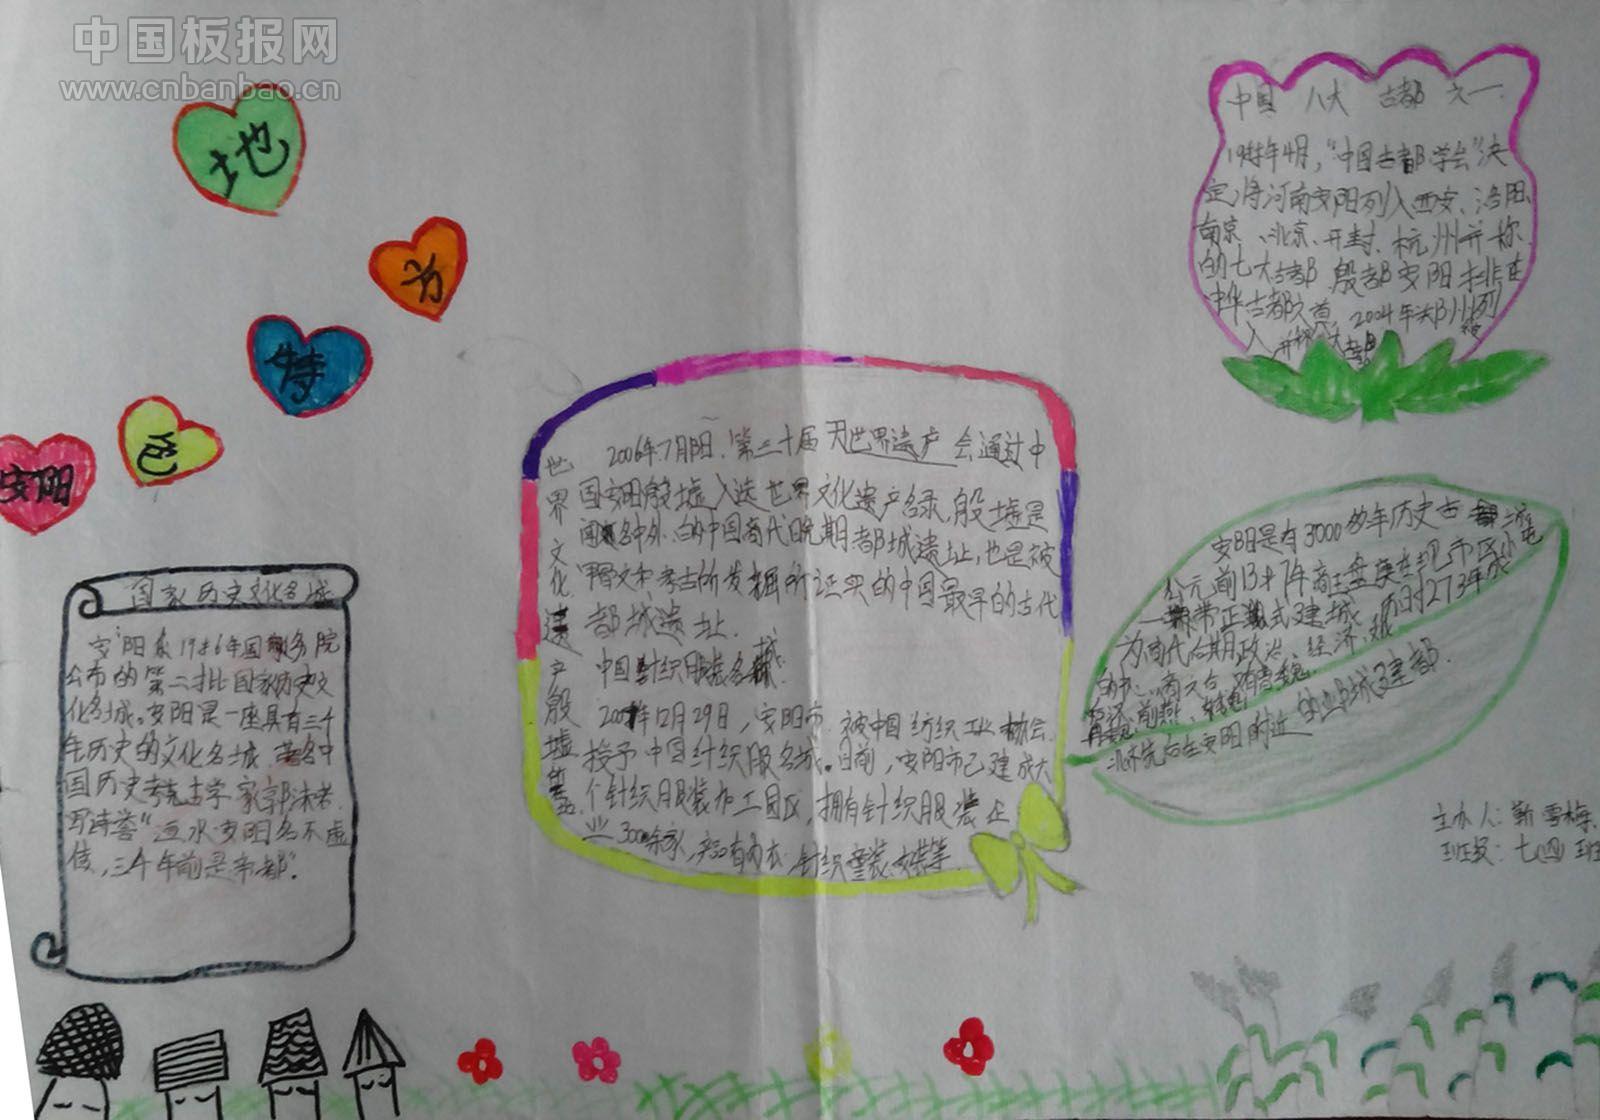 中国板报网
www.cnbanbao.cn
地
方
特
色
安阳
国家历史文化名城
安阳系1986年国家务院
公布的第二批国家历史文
化名城。安阳是一座具有三千
年历史的文化名城
国历史考古学家郭沫若
写诗答“洹水安阳名不虚
信,三千年前是帝都”.
世界文化遗产殷墟等
2006年7月
第三十届
世界遗产
会通过中
国安阳殷墟入选世界文化遗产名录,殷墟是
闻名中外的中国商代晚期都城遗址,也是被
甲骨文和考古所发掘所证实的中国最早的古代
都城遗址.
中国针织服装名城
年12月29日,安阳市被中国纺织工业协会
授予中国针织服名城。目前,安阳市已建成大
个针织服装加工园区,拥有针织服装企
业3000余家,产品有内衣 针织童装、
中国 八大 古都 之一
年4月,“中国古都学会”决
定,将河南安阳列入西安、洛阳、
南京、北京、开封、杭州并称
的七大古都 殷都安阳排在
中华古都之首
2004年
安阳是有3000多年历史古
公元前13
年商王盘庚
正式建城 历时273年成
为商代后期政治、经济、
前燕、
先后在安阳附近的
建都.
主办人:靳雪梅
班级:七(四)班